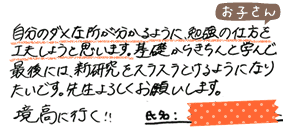 お子さん
自分のダメな所が分かるように、勉強の仕方を
工夫しようと思います。基礎からきちんと学んで
最後には、新研究をスラスラとけるようになり
たいです。先生よろしくお願いします。
境高に行く!! 氏名: